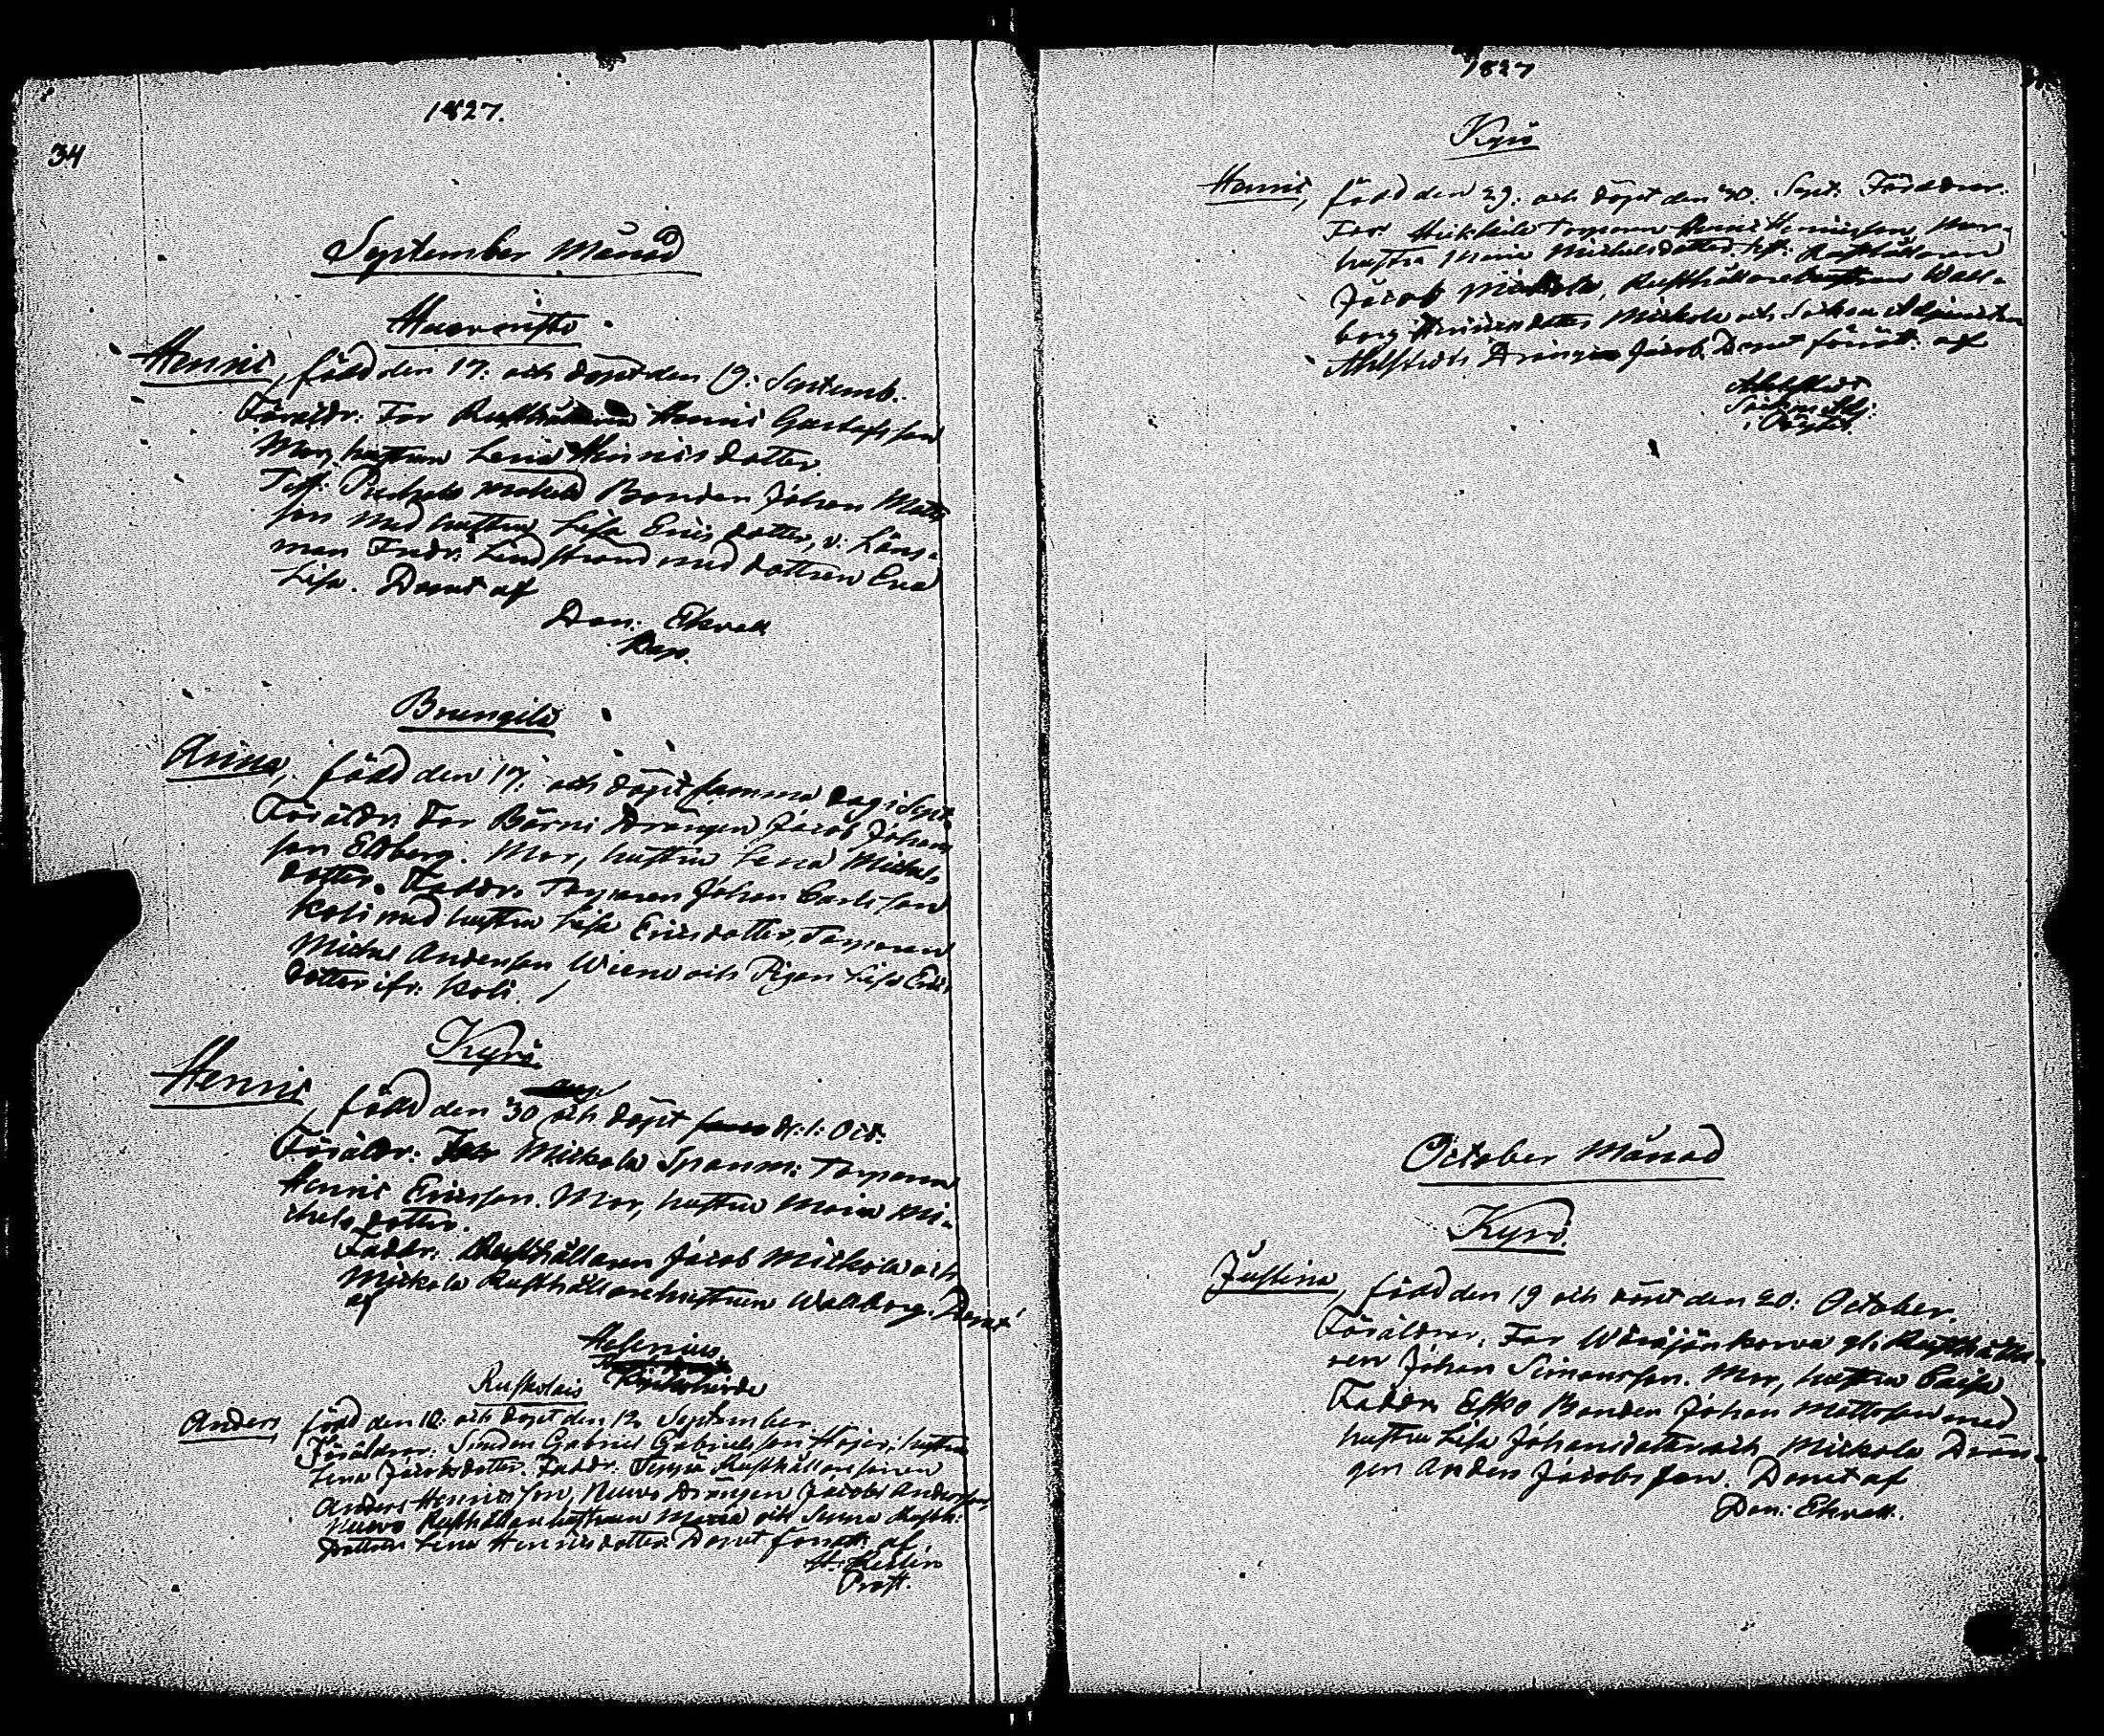 1827.
34
September Månad
Haveristo
Henric, född den 17. och döpt den 19. Septemb.
Föräldr: Far Rusthållaren Henric Gustafsson
Mor, hustrun Lena Henricsdotter
Test: Bonden Johan Matts
son med hustrun Lisa Ericsdotter, v. Läns-
man Fredr. Lindström med dottren Eva
Lisa. Döpt af
Dan. Ekvall
Kap.
Brungila
Anna, född den 17. och döpt samma dag i Sept.
Föräldr. Far Börni Drängen Jacob Johans
son Edberg. Mor, hustrun Lena Michels
dotter. Faddr. Torparen Johan Carlsson
Koli med hustru Lisa Ericsdotter, Torparen
Michel Andersson Wieno och Pigan Lisa Erics
dotter ifr. Koli.
Kyrö
Henric, född den 30 och döpt d. 1. Oct.
Föräldr: Far Mickola Spanm: Torparen
Henric Ericsson. Mor, hustrun Maria Mi-
chelsdotter.
Faddr: Rusthållaren Jacob Mickola och
Mickola Rusthållarehustrun Wallborg. Döpt
af
Helenius
Kyrkoherde
Ruskolais
Anders född den 10. och döpt den 12 September
Föräldrar: Smeden Gabriel Gabrielsson Höijer, hustru
Lena Jacobsdotter. Faddr. Seppä Rusthållaresonen
Anders Henricsson, Nuero Drängen Jacob Andersson,
Nuero Rusthållarehustrun Maria och
Dottren Lena Henricsdotter. Döpt förrätt. af
H. Hellén
Prost.
1827
Kyrö
Henric, född den 29. och döpt den 30. Sept. Föräldrar.
Far Torparen Henric Henricsson, Mor,
hustru Maria Michelsdotter. Rusthållaren
Jacob Mickola, Rusthållarehustrun Wall-
borg Henricsdotter Mickola och Sockne Adjuncten
Ahlstedts Dräng Jacob. Döpt förrätt. af
Ahlstedt
Sockne Adj.
i Pöytis.
October Månad
Kyrö.
Justina, född den 19 och döpt den 20. October.
Föräldrar, Far gl: Rusthålla-
ren Johan Simonsson. Mor, hustru Caisa
Faddr. Esko Bonden Johan Mattsson med
hustru Lisa Johansdotter och Mickola Drän-
gen Anders Jacobsson. Döpt af
Dan: Ekvall.